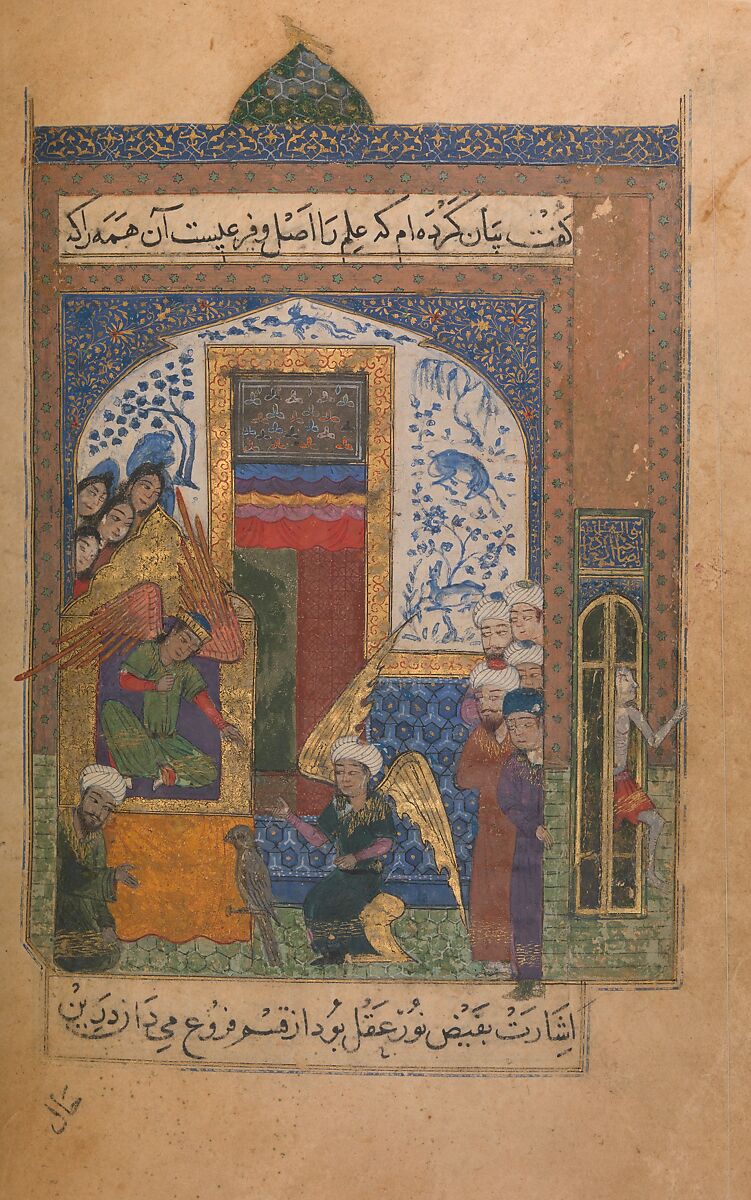 کفت بیان کَرْدَه ام که عِلم رَا اَصْل و فرعیست آن هَمَه را که
اِشارَتْ بفَیْض نُورِ عَقْل بُود از قِسْم فرُوع می دَارَد دَرین
حال